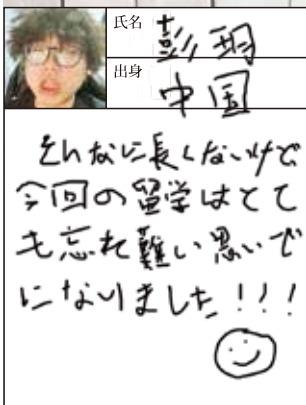 氏名 彭玥
出身 中国
そんなに長くないけど
今回の留学はとて
も忘れ難い思いで
になりました!!!